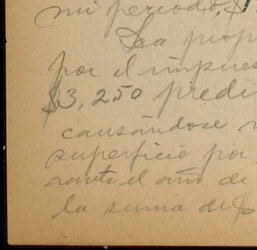 mi periodo, $
La prop
por el impues
$3,250 predi
causándose
superficie por
rante el año de
la suma de $